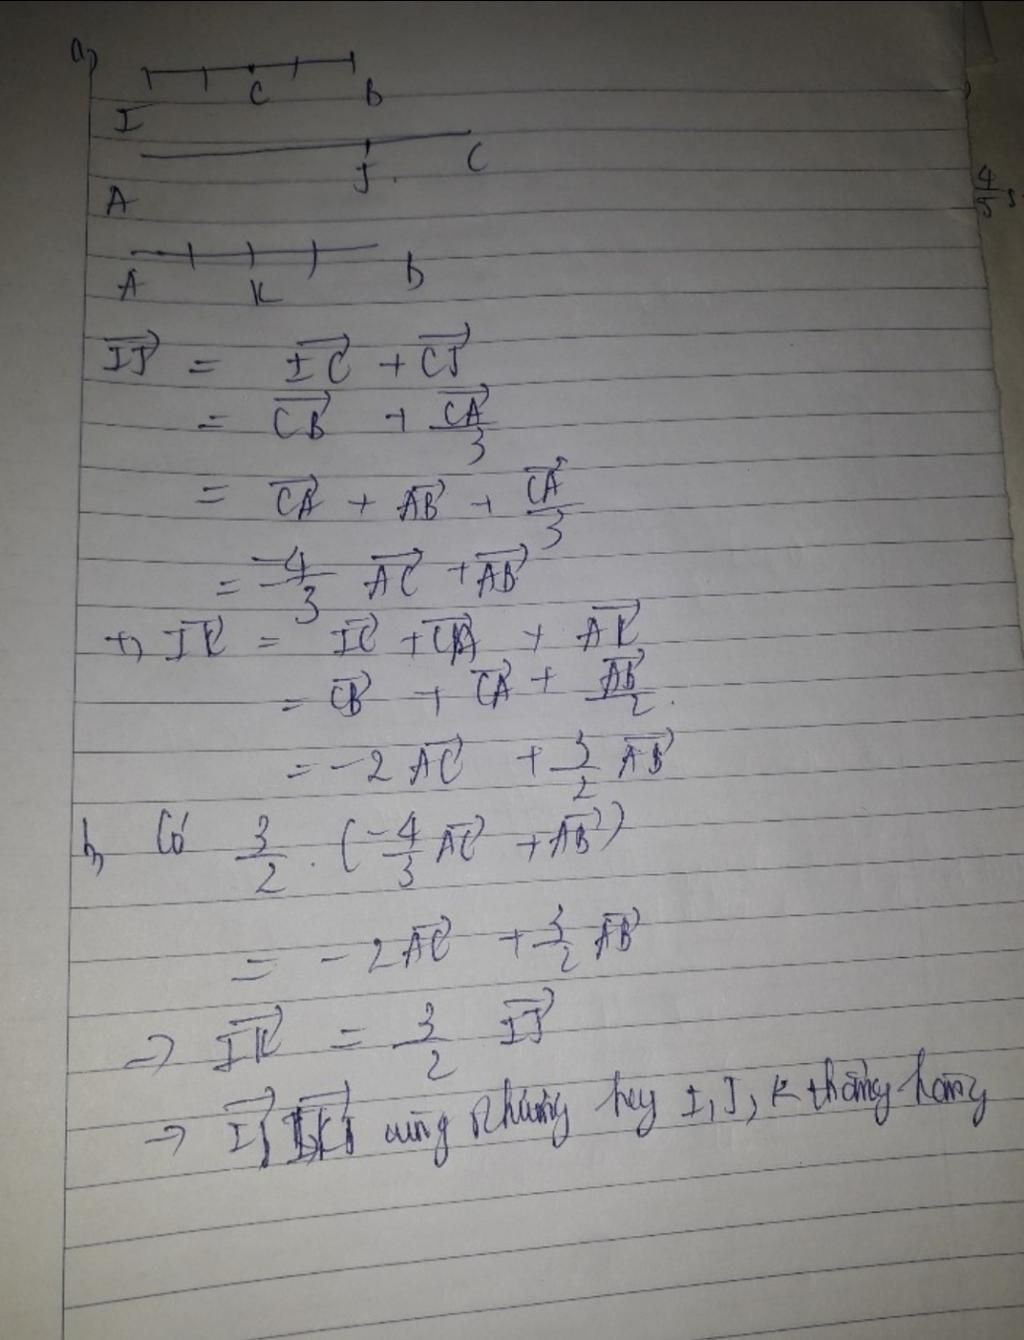 a)
I C B
A J C
4/5
A K B
IJ⃗ = IC⃗ + CJ⃗
= CB⃗ + CA⃗/3
= CA⃗ + AB⃗ + CA⃗/3
= -4/3 AC⃗ + AB⃗
+) IK⃗ = IC⃗ + CA⃗ + AK⃗
= CB⃗ + CA⃗ + AB⃗/2.
= -2 AC⃗ + 3/2 AB⃗
b, Có 3/2 . (-4/3 AC⃗ + AB⃗)
= -2 AC⃗ + 3/2 AB⃗
⇒ IK⃗ = 3/2 IJ⃗
⇒ IJ⃗ cùng phương hay I, J, K thẳng hàng